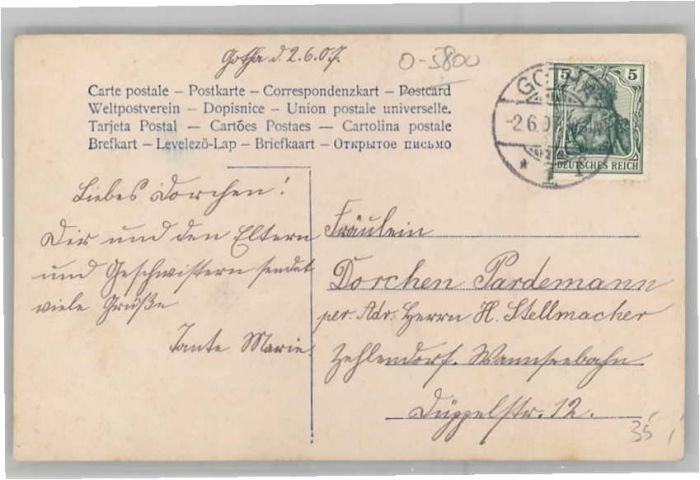 Gotha d. 2.6.07.
O-5800
Carte postale – Postkarte – Correspondenzkart – Postcard
Weltpostverein – Dopisnice – Union postale universelle.
Tarjeta Postal – Cartões Postaes – Cartolina postale
Brefkart – Levelezö-Lap – Briefkaart – Открытое письмо
5 5
DEUTSCHES REICH
GOTHA
-2.6.07
* 1
Liebes Dorchen!
Dir und den Eltern
und Geschwistern sendet
viele Grüße
Tante Marie.
Fräulein
Dorchen Pardemann
per. Adr. Herrn H. Stellmacher
Zehlendorf. Wannseebahn.
Düppelstr. 12.
35